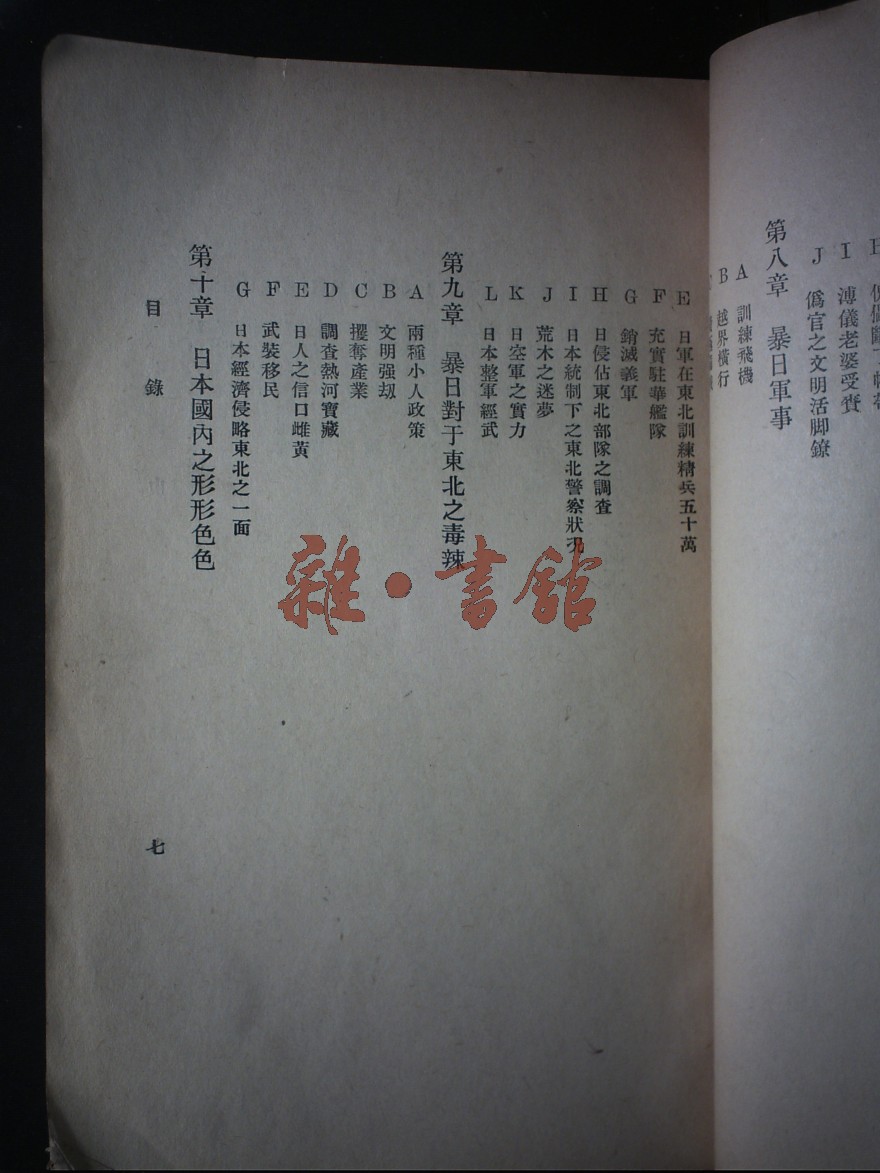 I 溥儀老婆受賚
J 僞官之文明活脚鐐
第八章 暴日軍事
A 訓練飛機
B 越界橫行
E 日軍在東北訓練精兵五十萬
F 充實駐華艦隊
G 銷滅義軍
H 日侵佔東北部隊之調查
I 日本統制下之東北警察狀况
J 荒木之迷夢
K 日空軍之實力
L 日本整軍經武
第九章 暴日對于東北之毒辣
A 兩種小人政策
B 文明强刼
C 攫奪產業
D 調查熱河寶藏
E 日人之信口雌黃
F 武裝移民
G 日本經濟侵略東北之一面
第十章 日本國內之形形色色
目錄
七
雜·書館